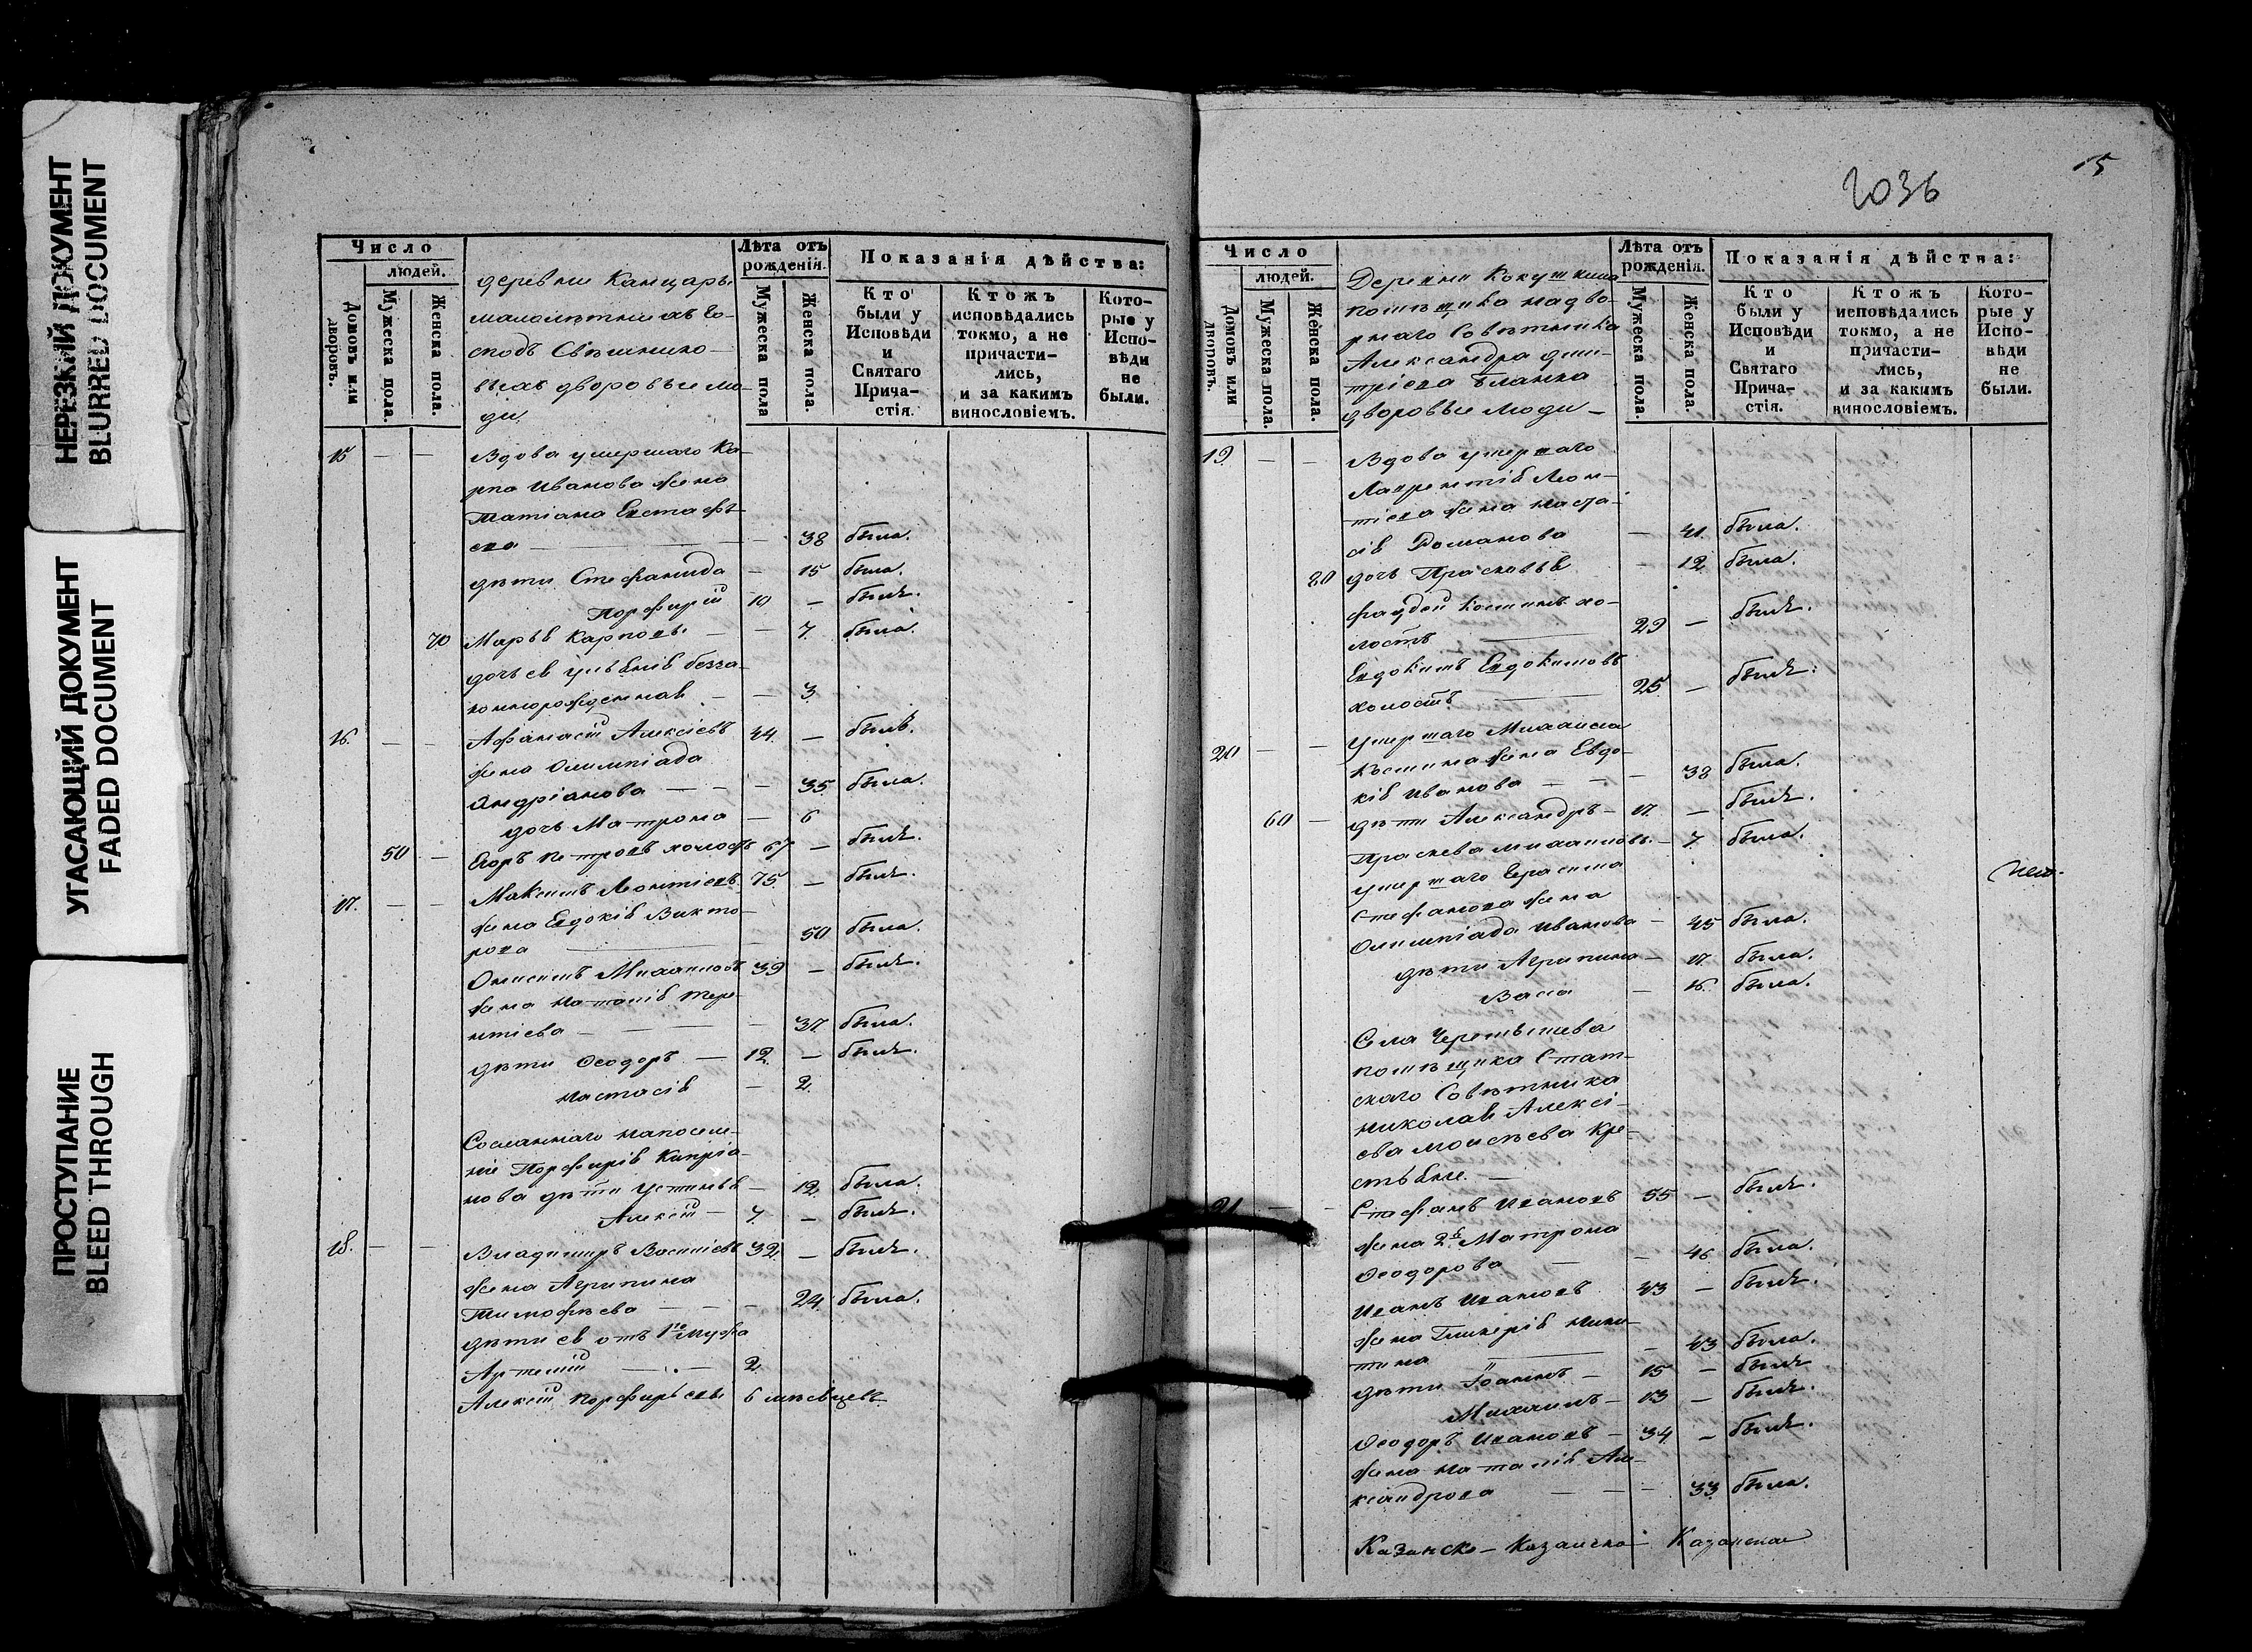 НЕРЕЗКИЙ ДОКУМЕНТ
BLURRED DOCUMENT
УГАСАЮЩИЙ ДОКУМЕНТ
FADED DOCUMENT
ПРОСТУПАНИЕ
BLEED THROUGH
Число
людей.
Домовъ или дворовъ.
Мужеска пола.
Женска пола.
деревни Канцары
малолѣтныхъ Го-
сподъ Свѣшнико-
выхъ дворовые лю-
ди,
Лѣта отъ рожденія.
Мужеска пола
Женска пола.
Показанія дѣйства:
Кто были у Исповѣди и Святаго Прича-
стія.
Ктожъ исповѣдались токмо, а не причасти-
лись, и за какимъ винословіемъ.
Кото-
рые у Испо-
вѣди не были.
15 — — Вдова умершаго Ка-
рпа Иванова жена
Татіана Евстафѣ-
ева — — 38 была.
дѣти Стефанида — 15 была.
Порфирій 10 — былъ.
70 Марья Карповы — — 7. была.
дочь ея Ульянія безза-
коннорожденная — — 3.
16. — — Афанасій Алексѣевъ 44. — былъ.
жена Олимпіада
Андріанова — — — 35. была.
дочь Матрона — 6
50 — Егоръ Петровъ холостъ 67 — былъ.
17. — — Максимъ Леонтіевъ 75. — былъ.
жена Евдокія Викто-
рова — — 50 была.
Онисимъ Михаиловъ 39 — былъ.
жена Наталія Тере-
нтіева — — — 37. была.
дѣти Ѳеодоръ — 12. — былъ.
Настасія — 2.
Сосланнаго на поселе-
ніе Порфирія Кипріа-
нова дѣти Устинья — 12. была.
Алексій — 7. — былъ.
18. — — Владимиръ Васильевъ 32. — былъ.
жена Агрипина
Тимофѣева — — — 24. была.
дѣти ея отъ 1го мужа
Артемій — . — 2.
Алексій Порфирьевы 6 мѣсяцевъ
2036
15
Число
людей.
Домовъ или дворовъ.
Мужеска пола.
Женска пола.
Деревни Кокушкина
помѣщика надво-
рнаго Совѣтника
Александра Дми-
тріева Бланка
дворовые люди —
Лѣта отъ рожденія.
Мужеска пола.
Женска пола.
Показанія дѣйства:
Кто были у Исповѣди и Святаго Прича-
стія.
Ктожъ исповѣдались токмо, а не причасти-
лись, и за какимъ винословіемъ.
Кото-
рые у Испо-
вѣди не были.
19. — — Вдова умершаго
Лаврентія Леон-
тіева жена Наста-
сія Романова — 41. была.
80 дочь Прасковья — 12. была.
холостъ 29 — былъ.
Евдокимъ Евдокимовъ
холостъ — 25. — былъ.
20 — — Умершаго Михаила
жена Евдо-
кія Иванова — — — 38 была.
60 — дѣти Александръ — 17. — былъ.
Праскева Михаиловы. — 7. была.
Умершаго Герасима
Стефанова жена
Олимпіада Иванова — 45 была.
дѣти Агрипина — 17. была.
Васса — 16. была.
Села Черемышева
помѣщика Стат-
скаго Совѣтника
Николая Алексѣ-
ева Моисѣева кре-
стьяне. —
21 — — Стефанъ Ивановъ 55 — былъ.
жена 2я Матрона
Ѳеодорова — — 46 была.
Иванъ Ивановъ 43 — былъ.
жена Гликерія Ники-
тина — — 43 была.
дѣти Іоаннъ — 15 — былъ
Михаилъ — 13 — былъ.
Ѳеодоръ Ивановъ — 34 — былъ.
жена Наталія Але-
ксандрова — — — 33. была.
Казанско — Казанска Казанская